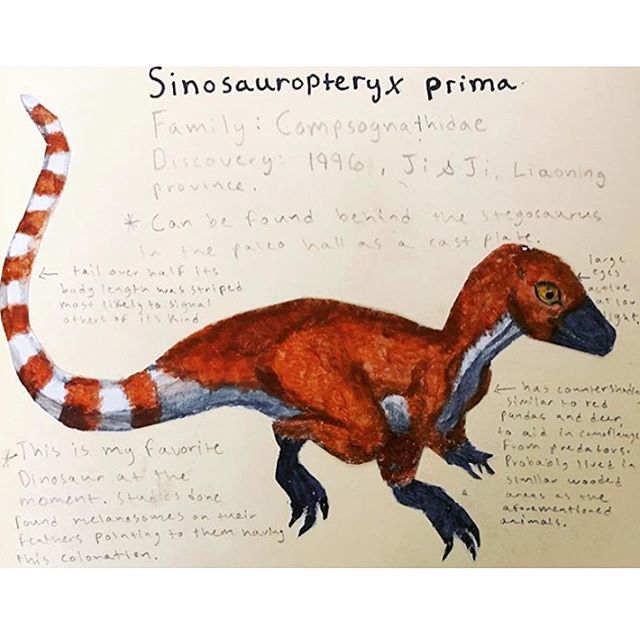 Sinosauropteryx prima
Family: Compsognathidae
Discovery: 1996, Ji & Ji, Liaoning
province.
* Can be found behind the stegosaurus
in the paleo hall as a cast plate.
← tail over half its
body length was striped
most likely to signal
others of its kind
large
← eyes
active
light
← has countershading
similar to red
pandas and deer,
to aid in camoflauge
from predators.
Probably lived in
similar wooded
areas as the
aforementioned
animals.
* This is my favorite
Dinosaur at the
moment. Studies done
found melanosomes on their
feathers pointing to them having
this coloration.